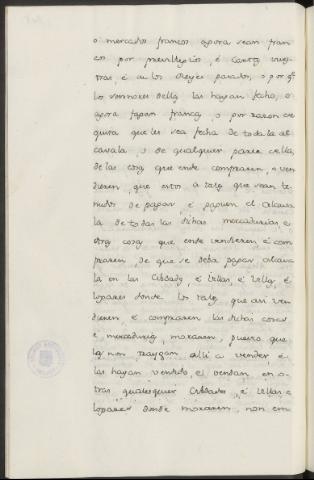 o mercados francos agora sean fran
cos por previllejios, é cartas nues
tras, é de los Reyes pasados, o por q.e
los sennores dellas las hayan fecho, o
agora fagan francas, o por razon es
quita que les sea fecha de toda la al
cavala, o de qualquier parte della,
de las cosas que ende compraren, o ven
dieren, que estos a tales que sean te
nudos de pagar é paguen el alcava
la de todas las dichas mercadurias, e
otras cosas que ende vendieren é com
praren, de que se deba pagar alcava
la en las Cibdades, é Villas, é Villas, é
logares donde los tales que asi ven
dieren é compraren las dichas cosas
é mercadurias, moraren, puesto que
las non traygan alli a vender, é
las hayan vendido, e vendan en o
tras qualesquier Cibdades, é Villas e
logares donde moraren, non em